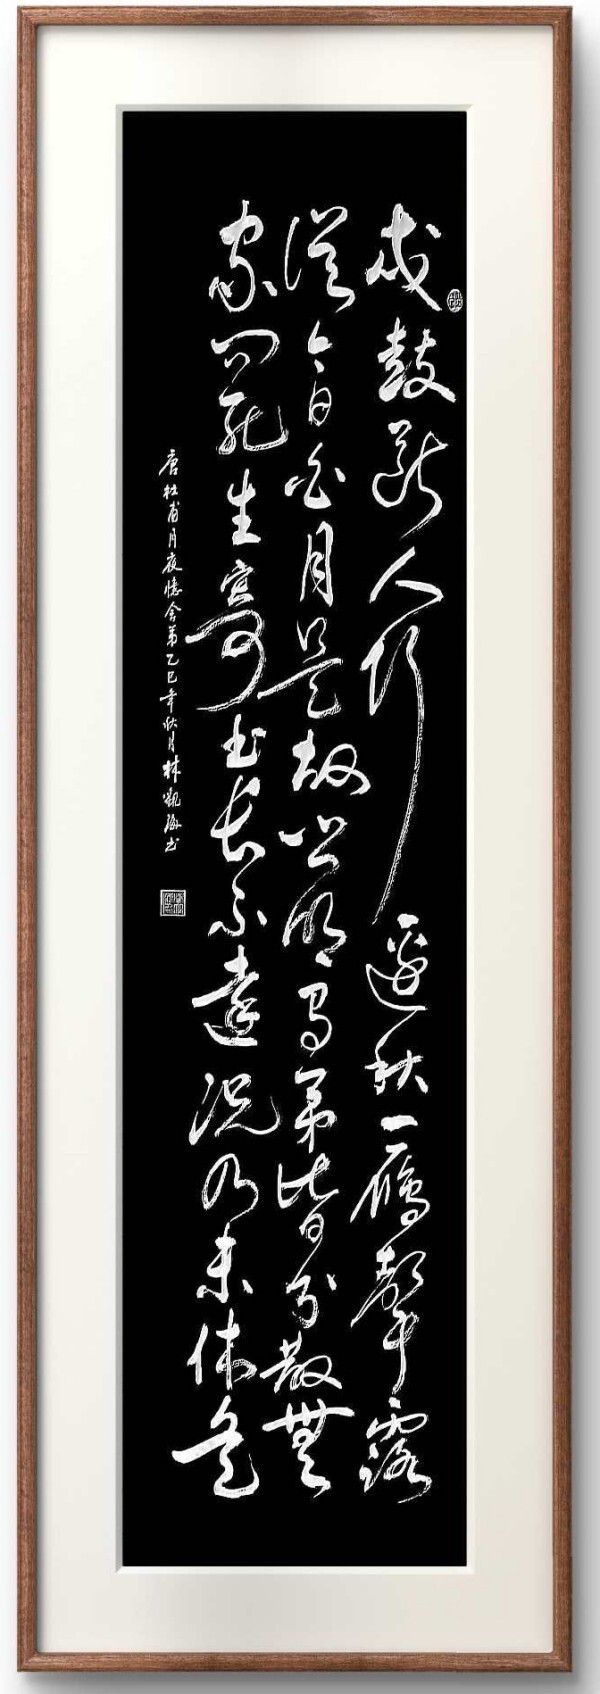 戍鼓斷人行邊秋一雁聲露
從今夜白月是故鄉明有弟皆分散無
家問死生寄書長不達況乃未休兵
唐杜甫月夜憶舍弟乙巳年秋月林書